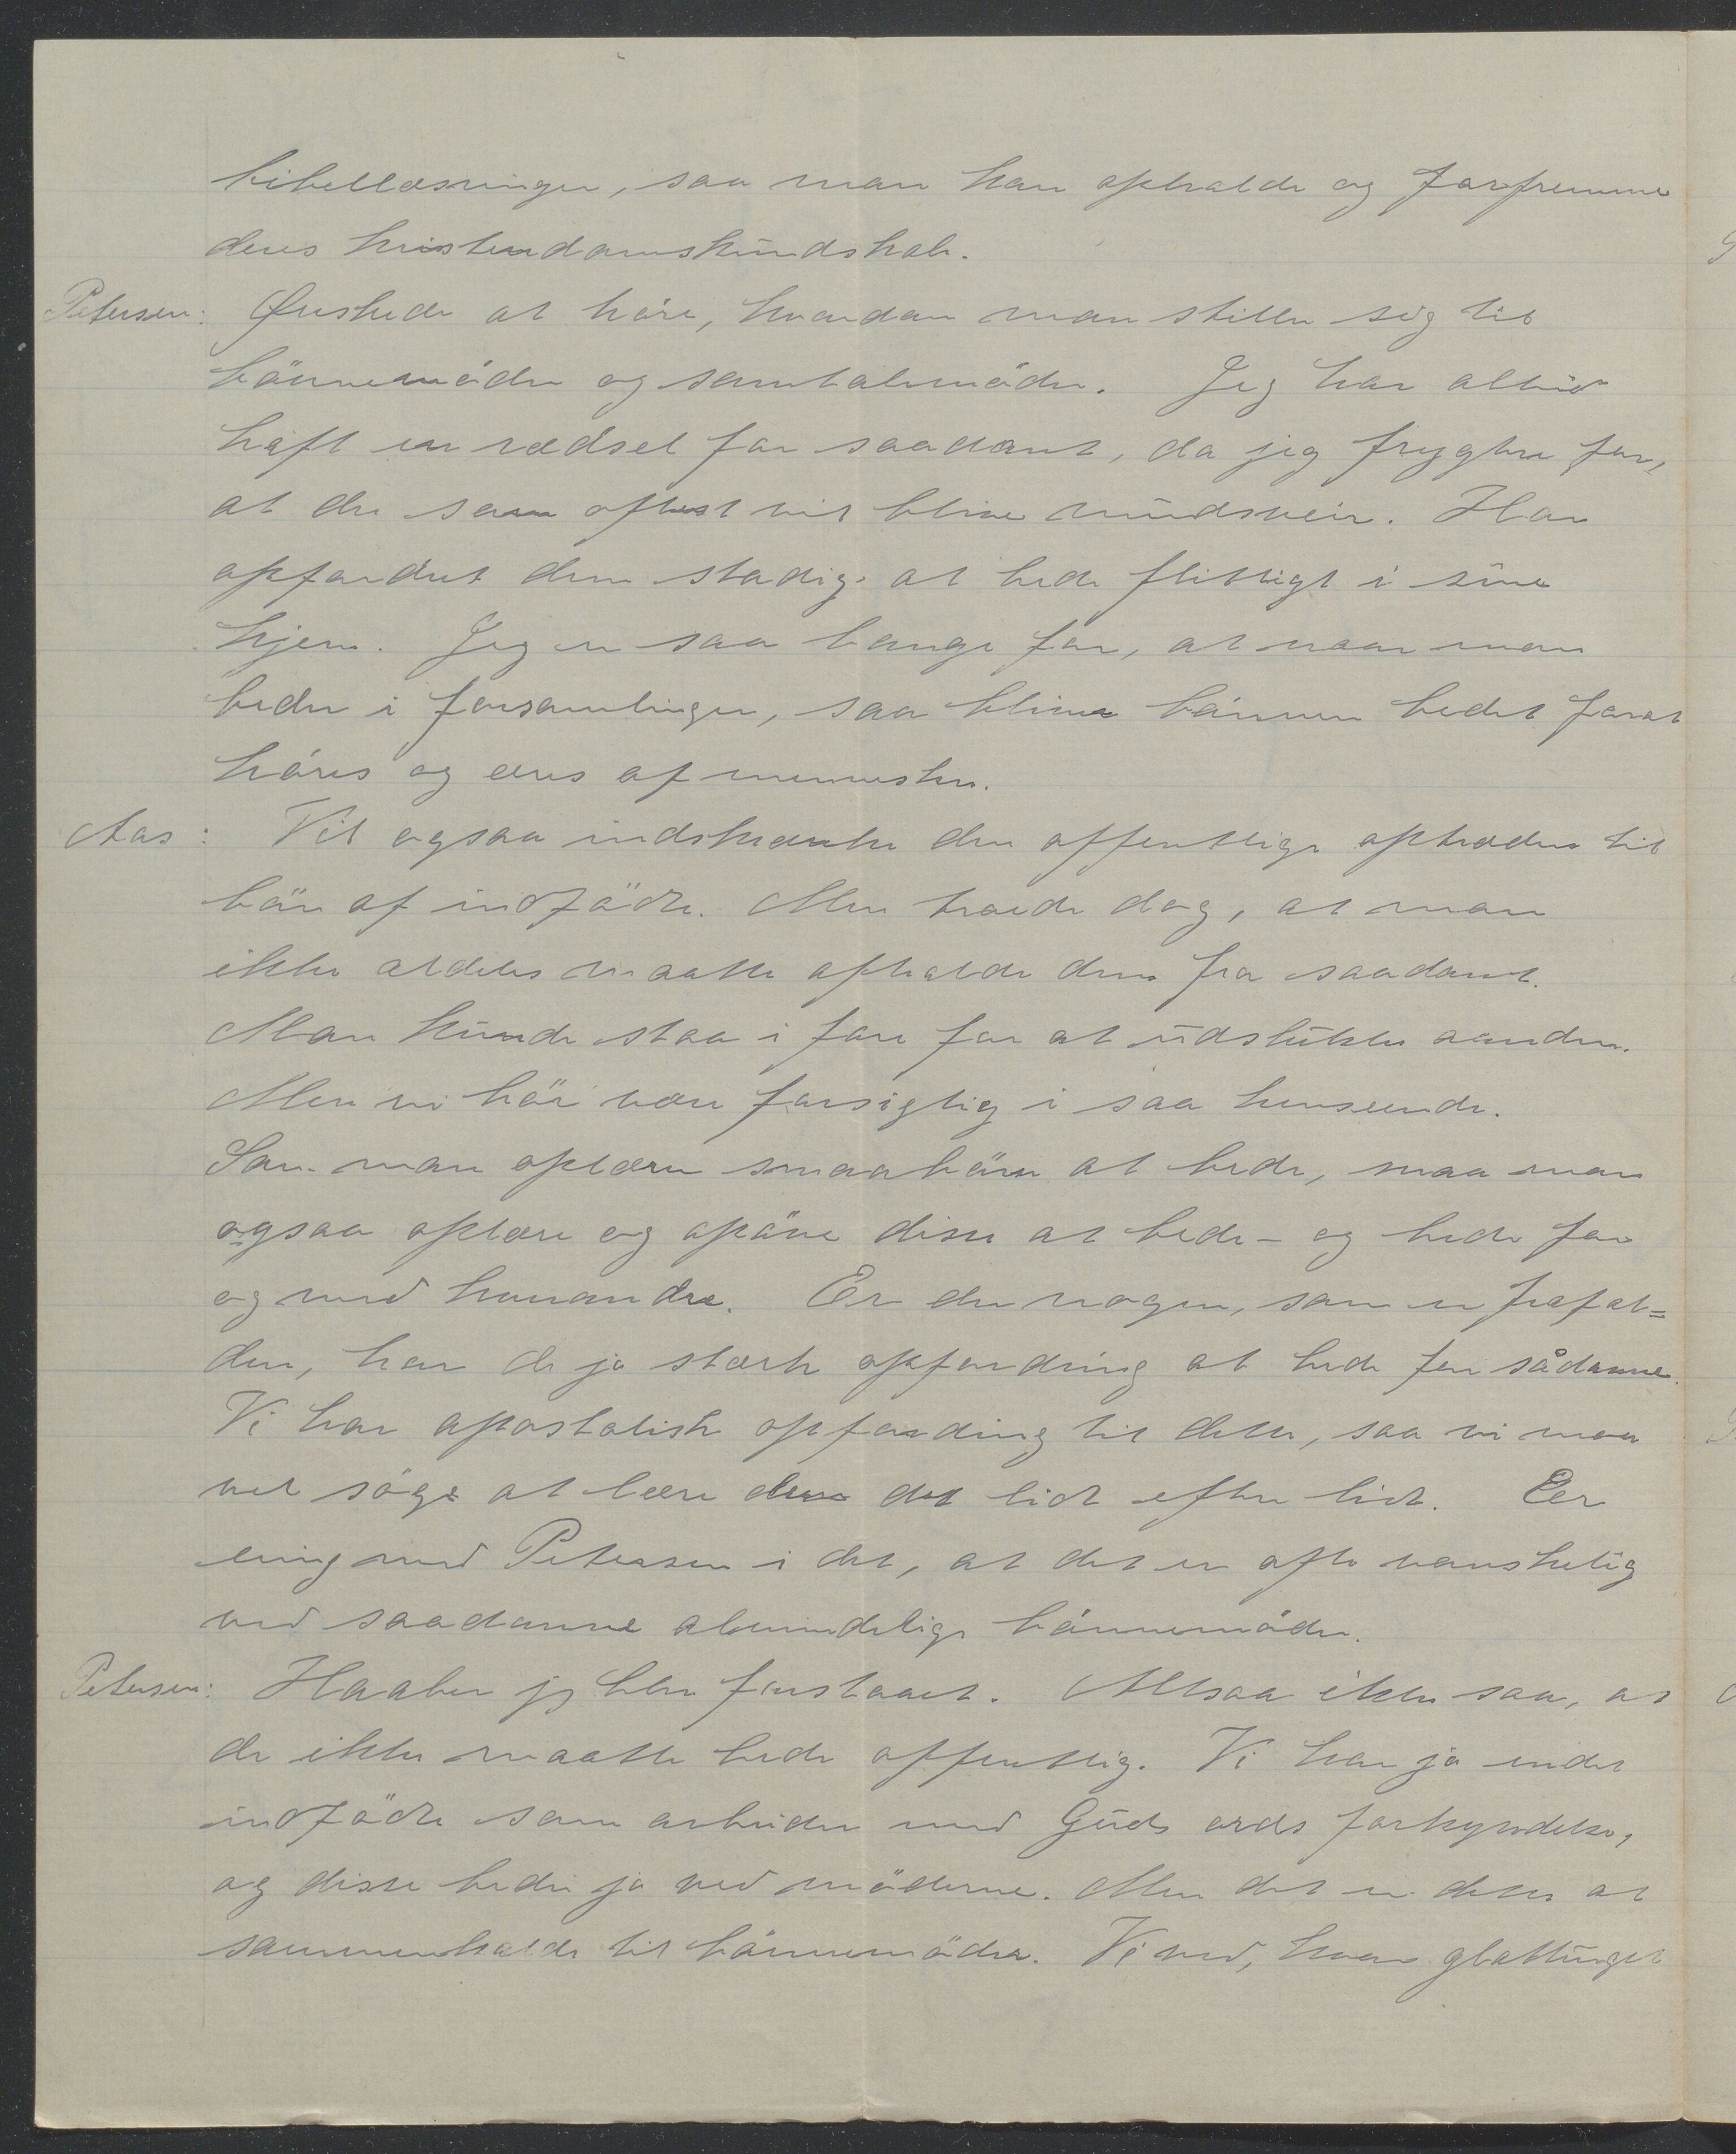 bibellæsninger, saa man kan opholde og forfremme
deres kristendomskundskab.
Petersen: Ønskede at höre, hvordan man stiller sig til
bönnemöder og samtalemöder. Jeg har altid
haft en rædsel for saadant, da jeg frygter for,
at der som oftest vil blive mundsveir. Har
opfordret dem stadig at bede flittigt i sine
hjem. Jeg er saa bange for, at naar man
beder i forsamlinger, saa bliver bönnen bedet forat
höres og æres af mennesker.
Aas: Vil ogsaa indskrænke den offentlige optræden til
bön af indfödte. Men troede dog, at man
ikke aldeles maatte afholde dem fra saadant.
Man kunde staa i fare for at udslukke aanden.
Men vi bör være forsigtig i saa henseende.
Som man oplærer smaabörn at bede, maa man
ogsaa oplære og opöve disse at bede – og bede for
og med hverandre. Er der nogen, som er frafal=
den, har de jo stærk opfordring at bede for sådanne.
Vi har apostolisk opfordring til dette, saa vi maa
vel söge at lære dem det lidt efter lidt. Er
enig med Petersen i det, at det er ofte vanskelig
ved saadanne almindelige bönnemöder.
Petersen: Haaber jeg blev forstaaet. Altsaa ikke saa, at
de ikke maatte bede offentlig. Vi har jo endel
indfödte som arbeider med Guds ords forkyndelse,
og disse beder jo ved möderne. Men det er dette at
sammenkalde til bönnemöder. Vi ved, hvor glattunget